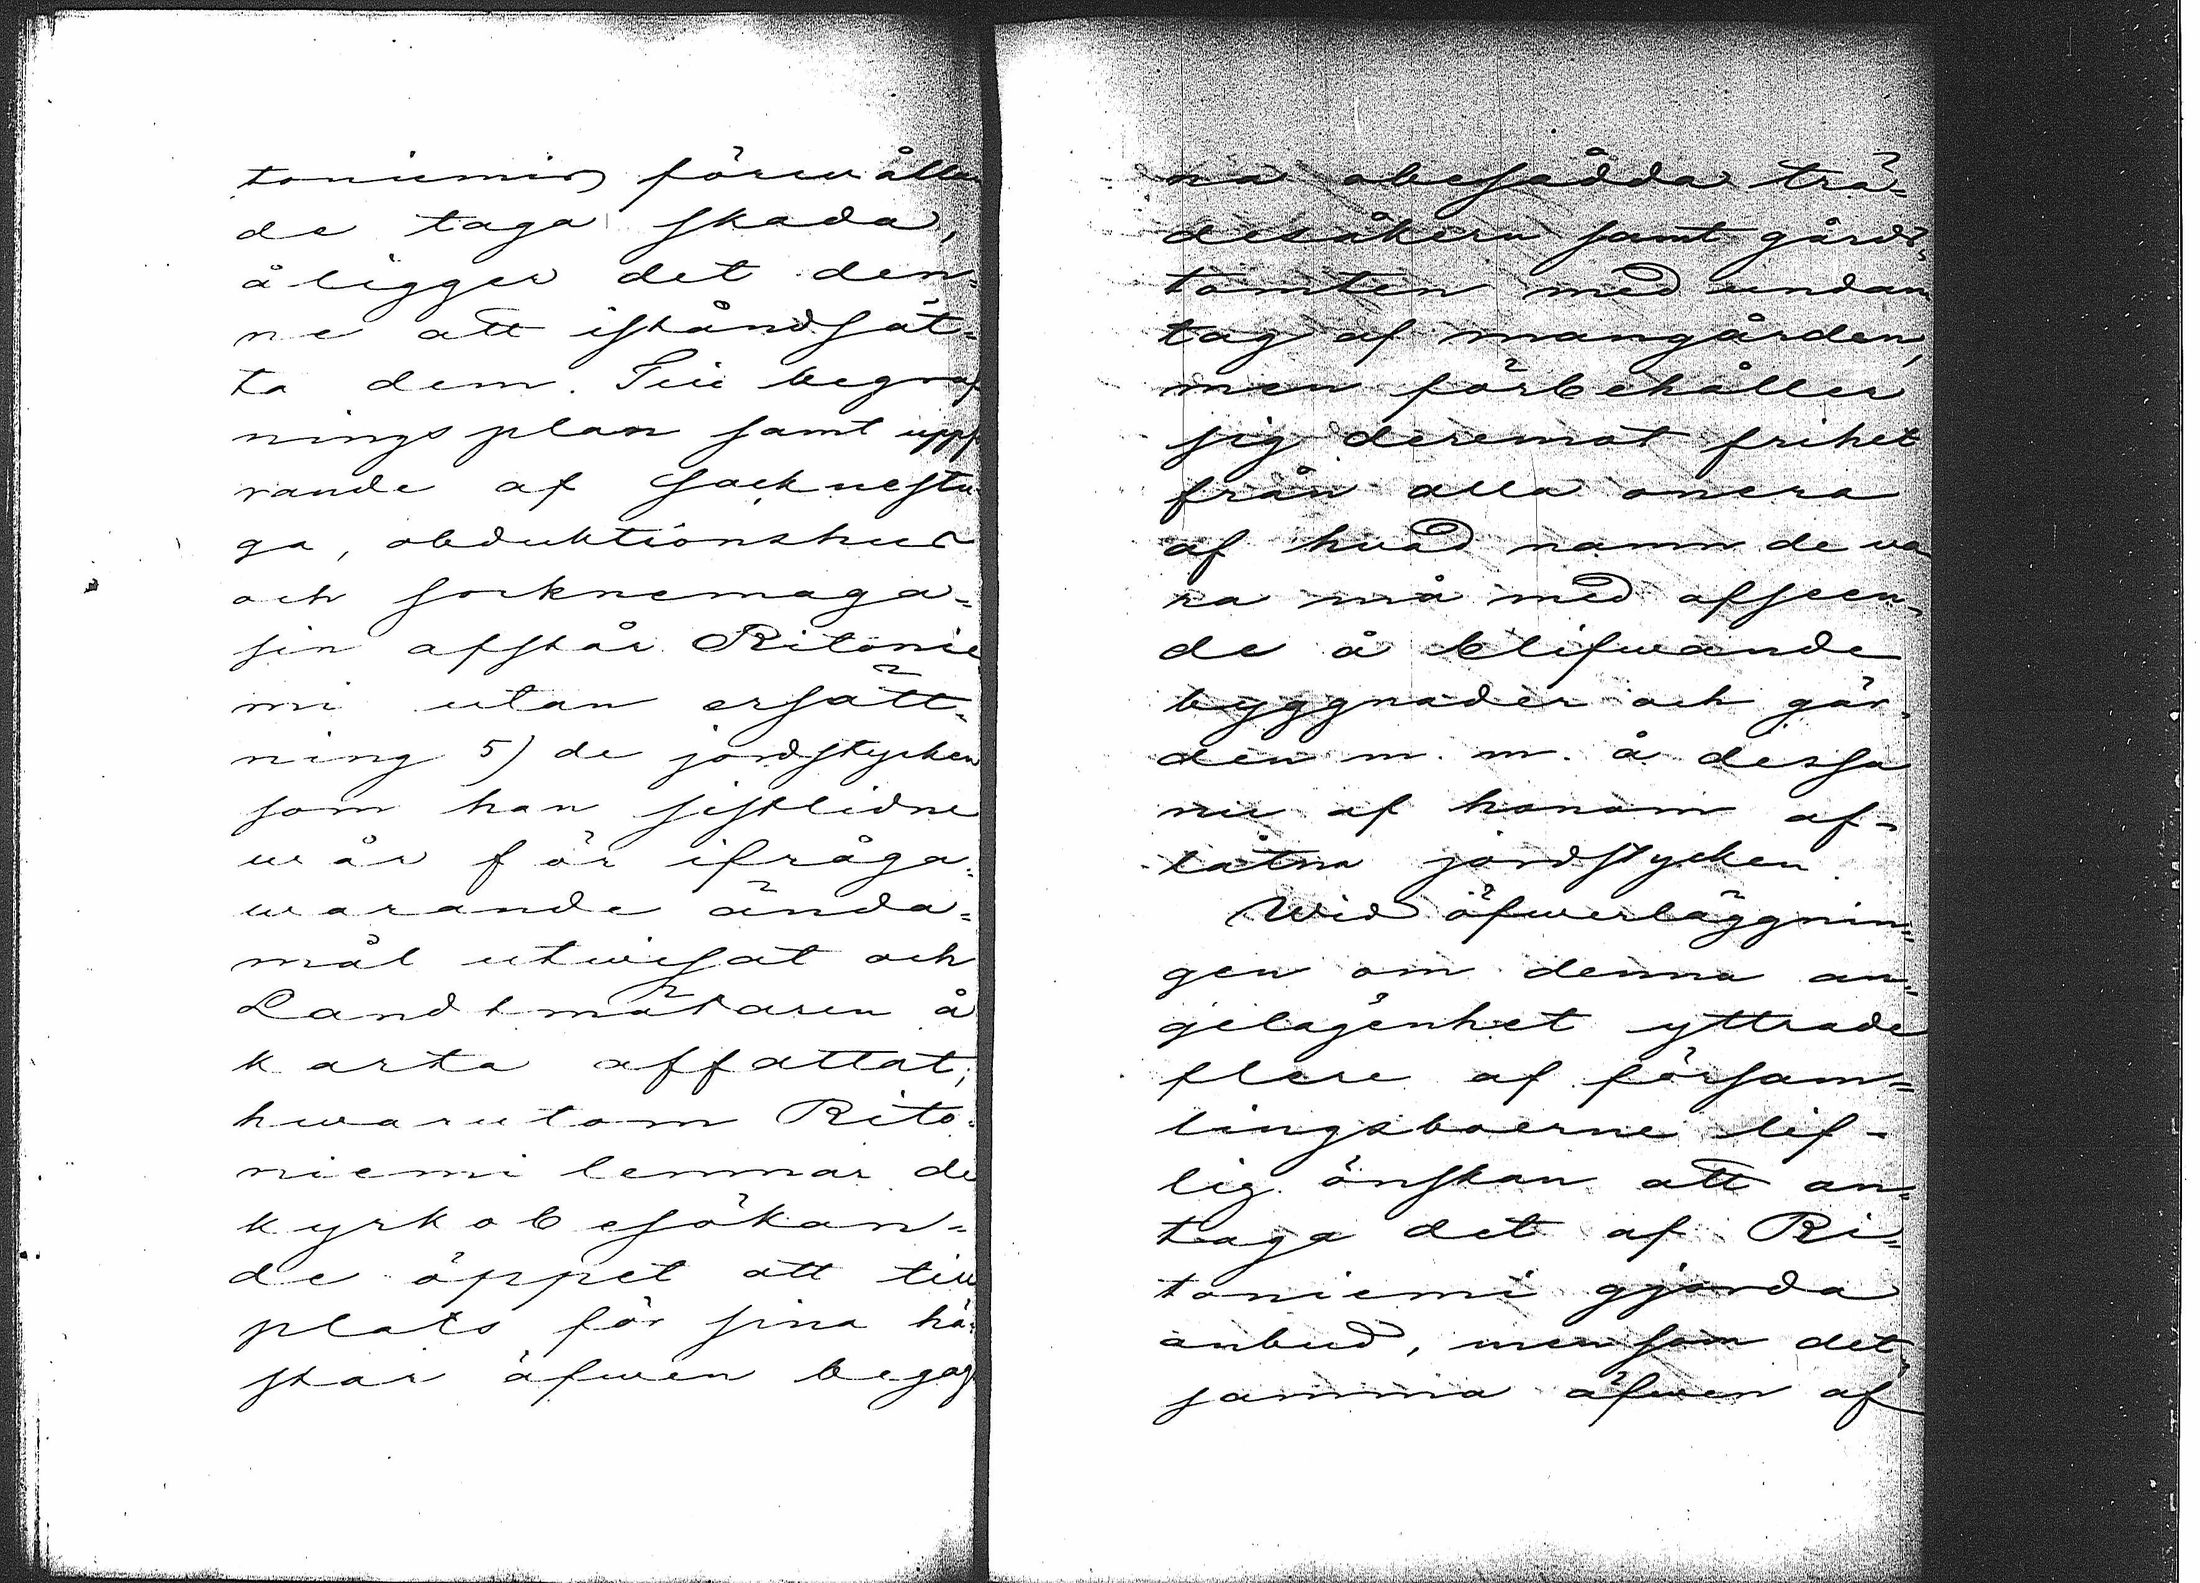 toniemis förwållan
de taga skada,
åligger det den=
ne att iståndsät=
ta dem. Till begraf
nings plan samt uppfö
rande af socknestu
ga, obduktionshus
och socknemaga=
sin afstår Ritonie
mi utan ersätt=
ning 5) de jordstycken
som han sistlidne
wår för ifråga=
warande ända=
mål utwisat och
Landtmätaren å
karta affattat;
hwarutom Rito=
niemi lemnar de
kyrkobesökan=
de öppet att till
plats för sina hä=
star äfwen begag
na obesådda trä=
desåkern samt gårds=
tomten med undan
tag af mangården,
men förbehåller
sig deremot frihet
från alla onera
af hwad namn de wa
ra må med afseen=
de å blifwande
byggnader och går=
den m. m. å dessa
nu af honom af=
låtna jordstycken.
Wid öfwerläggnin=
gen om denna an=
gelägenhet yttrade
flere af försam=
lingsboerne lif=
lig önskan att an=
taga det af Ri=
toniemi gjorda
anbud, men som det=
samma äfwen af